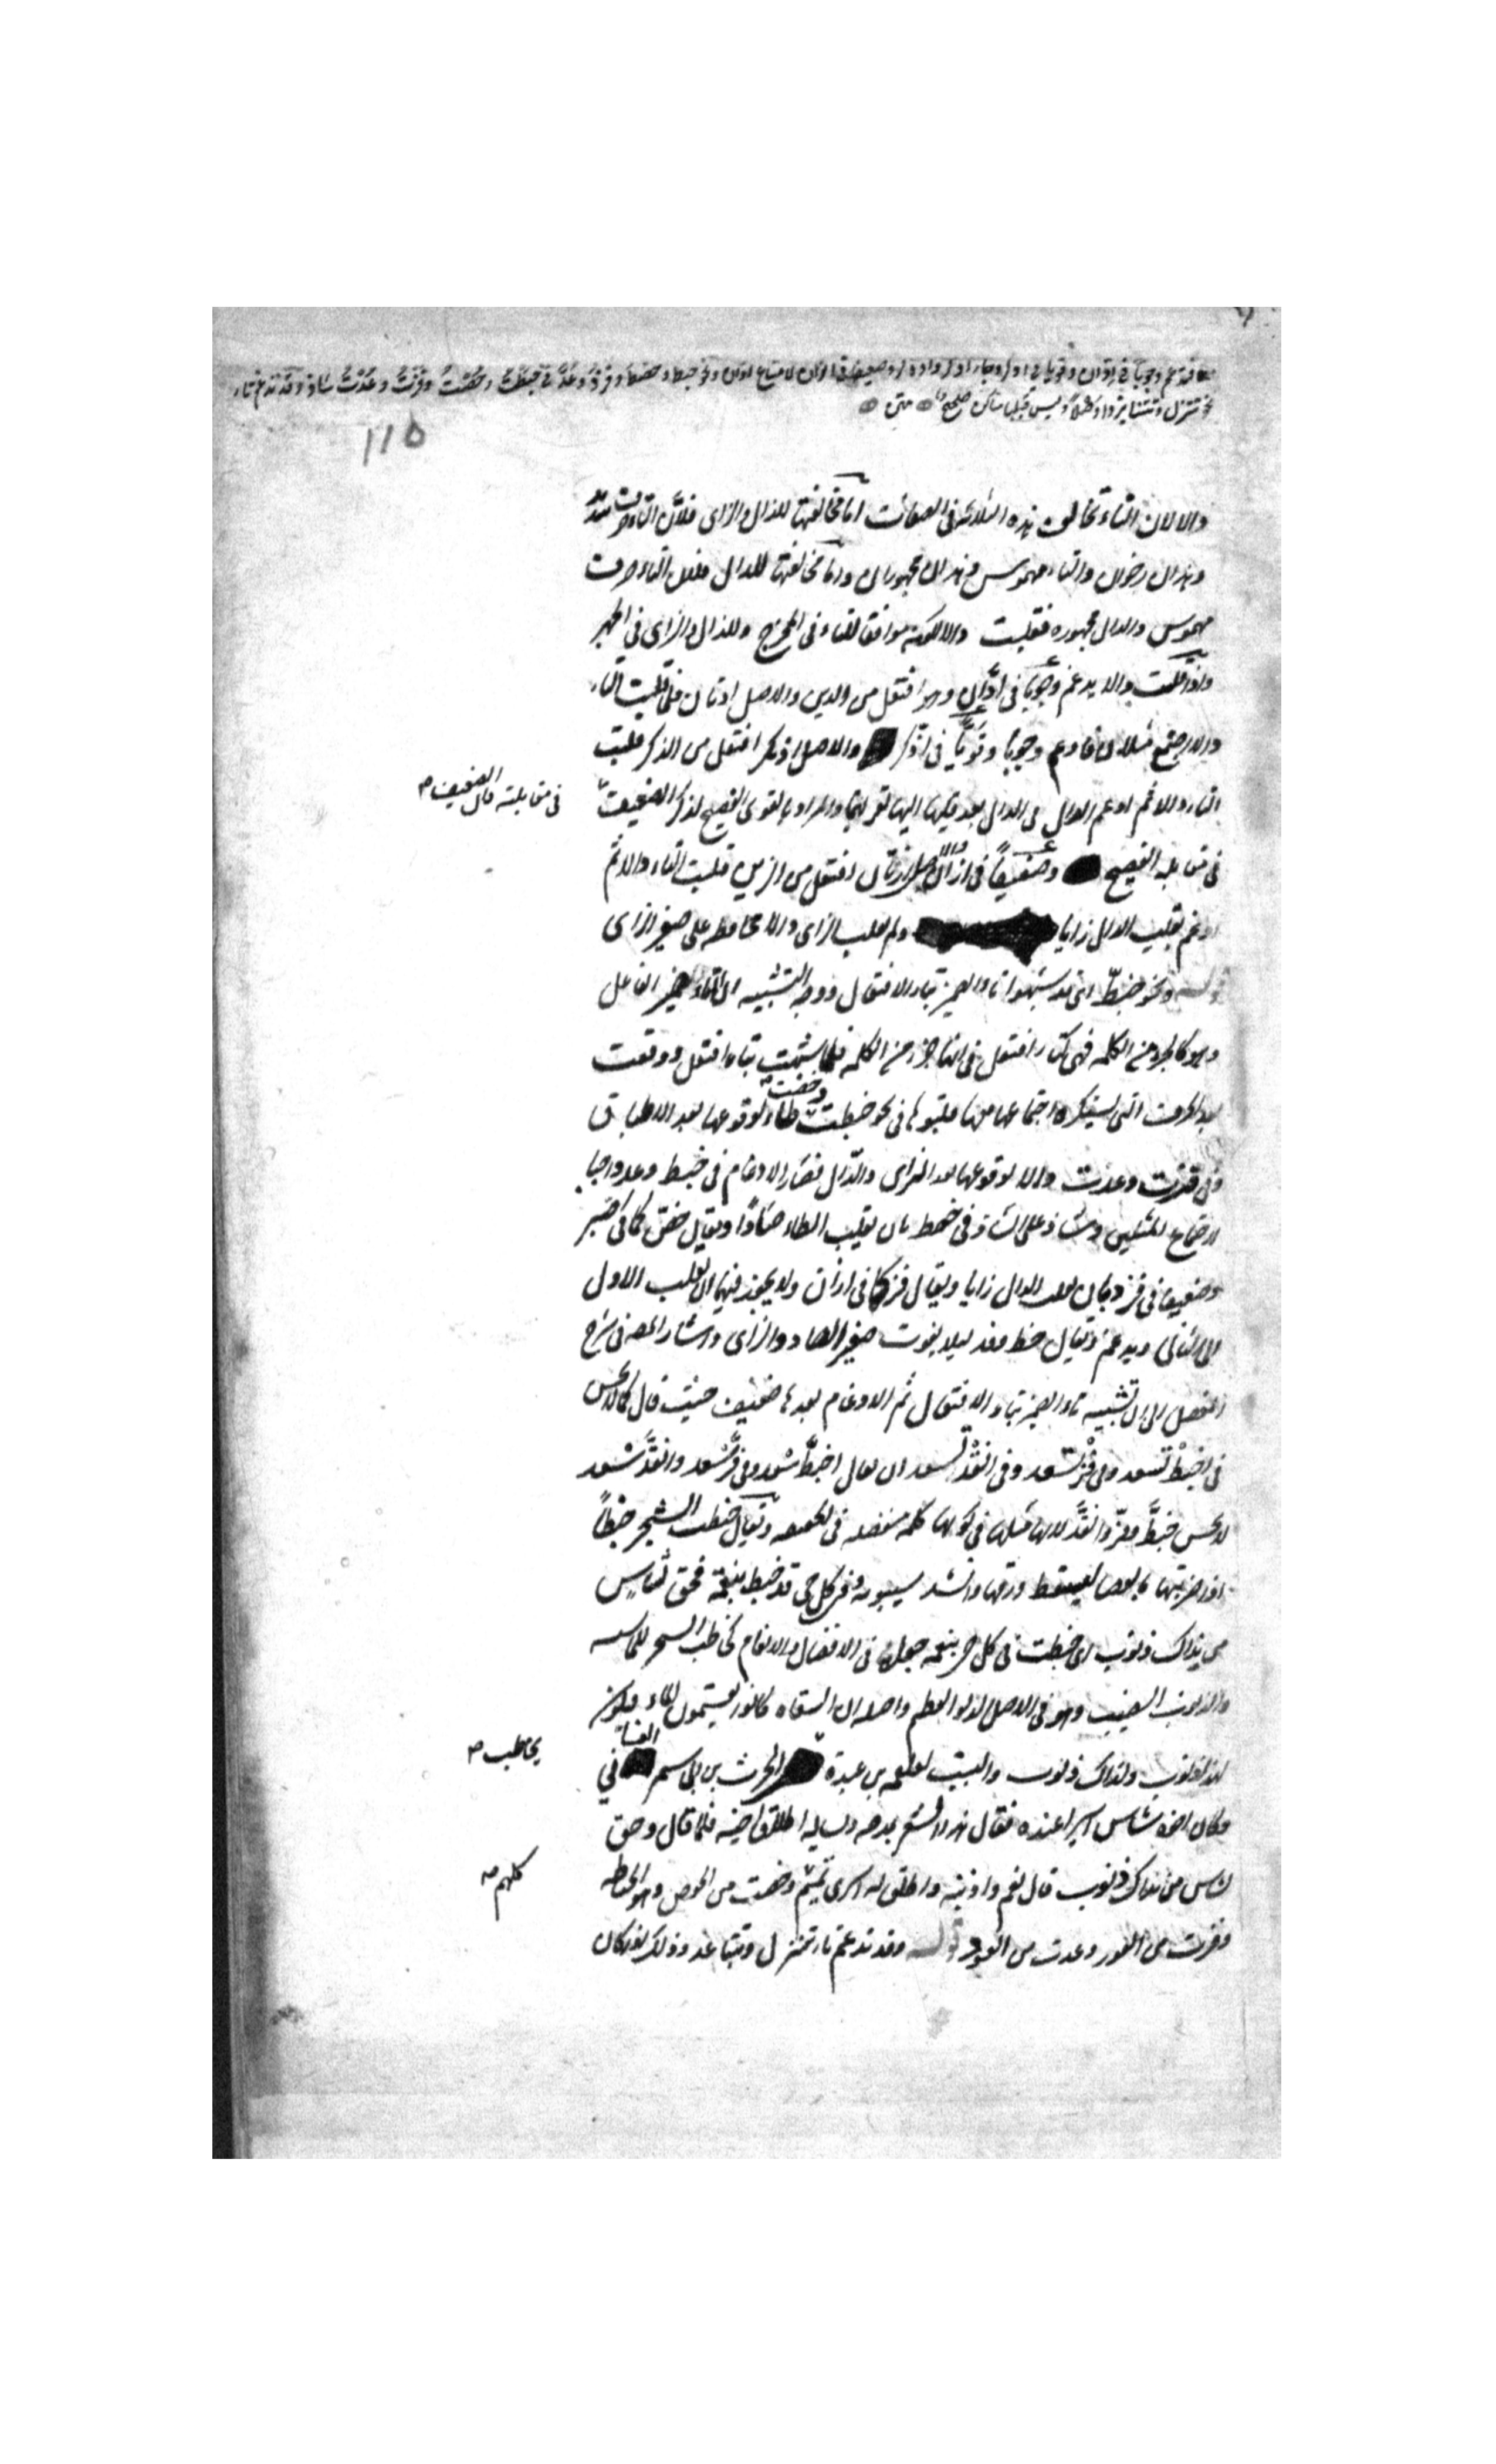 فتدغم وجوبا في ادّان وقويا في ادّكر وجاء اذّكر واذدكر وضعيفا في ازّان لامتناع ادّان ونحو خبط وحصط وفزد وعدّ في خبطت وحصت وفزت وعدت شاذ وقد تدغم تاء
نحو تتنزل وتتنابزوا وصلا وليس قبلها ساكن صحيح متن
115
دالا لان التاء تخالف هذه الثلاثة في الصفات اما مخالفتها للذال والزاى فلان التاء حرف شديد
وهذان رخوان والتاء مهموس وهذان مجهوران واما مخالفتها للدال فلان التاء حرف
مهموس والدال مجهورة فقلبت دالا لكونه موافقا للتاء فى المخرج وللذال والزاى فى الجهر
واذا قلبت دالا يدغم وجوبا فى ادّان وهو افتعل من الدين والاصل ادتان فلما قلبت التاء
دالا اجتمع مثلان فادغم وجوبا وقويا فى ادّكر والاصل اذتكر افتعل من الذكر قلبت
التاء دالا ثم ادغم الذال فى الدال بعد قلبها اليها لقربهما والمراد بالقوى الفصيح لذكر الضعيف
فى مقابلته قال الضعيف صح
فى مقابله الفصيح وضعيفا فى ازّان والاصل ازتان افتعل من الزين قلبت التاء دالا ثم
ادغم بقلب الدال زايا ولم تقلب الزاى دالا محافظة على صفير الزاى
قوله ونحو خبطّ اى قد شبهوا تاء الضمير بتاء الافتعال ووجه التشبيه ان التاء ضمير الفاعل
وهو كالجزء من الكلمة فهى كتاء افتعل فى انها جزء من الكلمة فلما شبهت بتاء افتعل ووقعت
بعد الحروف التى يستكره اجتماعها معها قلبوها فى نحو خبطت وحصت طاء لوقوعها بعد الاطباق
وفى فزت وعدت دالا لوقوعها بعد الزاى والدال فصار الادغام فى خبط وعد واجبا
لاجتماع المثلين وشاذ على الشاذ فى حصط بان يقلب الطاء صادا ويقال حصّ كما فى اصّبر
وضعيفا فى فزد بان يقلب الدال زايا ويقال فزّ كما فى ازّان ولا يجوز فيهما ان يقلب الاول
الى الثانى ويدغم ويقال حط وفد لئلا يفوت صفير الصاد والزاى واشار المص فى شرح
المفصل الى ان تشبيه تاء الضمير بتاء الافتعال ثم الادغام بعدها ضعيف حيث قال كما لا يحسن
فى اخبط تسعد وفى فز تسعد وفى انقد تسعد ان يقال اخبطّسعد وفزّسعد وانقدّسعد
لا يحسن خبطّ وفزّ وانقدّ لانها مثلها فى كونها كلمة منفصلة فى الحقيقة ويقال خبطت الشجر خبطا
اذا ضربتها بالعصا ليسقط ورقها وانشد سيبويه وفى كل حى قد خبط بنعمة فحق لشاس
من نداك ذنوب اى خبطت فى كل حى بنعمة جعله فى الافضال والانعام كخاطب الشجر للماشية
والذنوب النصيب وهو فى الاصل الدلو العظيم واصله ان السقاة كانوا يقتسمون الماء فيكون
لهذا ذنوب ولذاك ذنوب والبيت لعلقمة بن عبدة الحرث بن ابى شمر الغسانى
يخاطب صح
وكان اخوه شاس اسيرا عنده فقال هذا الشعر يمدحه ويساله اطلاق اخيه فلما قال وحق
لشاس من نداك ذنوب قال نعم واذنبة واطلق له اسرى تميم وحصت من الحوص وهو الخياطة
كلهم صح
وفزت من الفوز وعدت من العود قوله وقد تدغم تاء تتنزل وتتباعد وذلك اذا كان